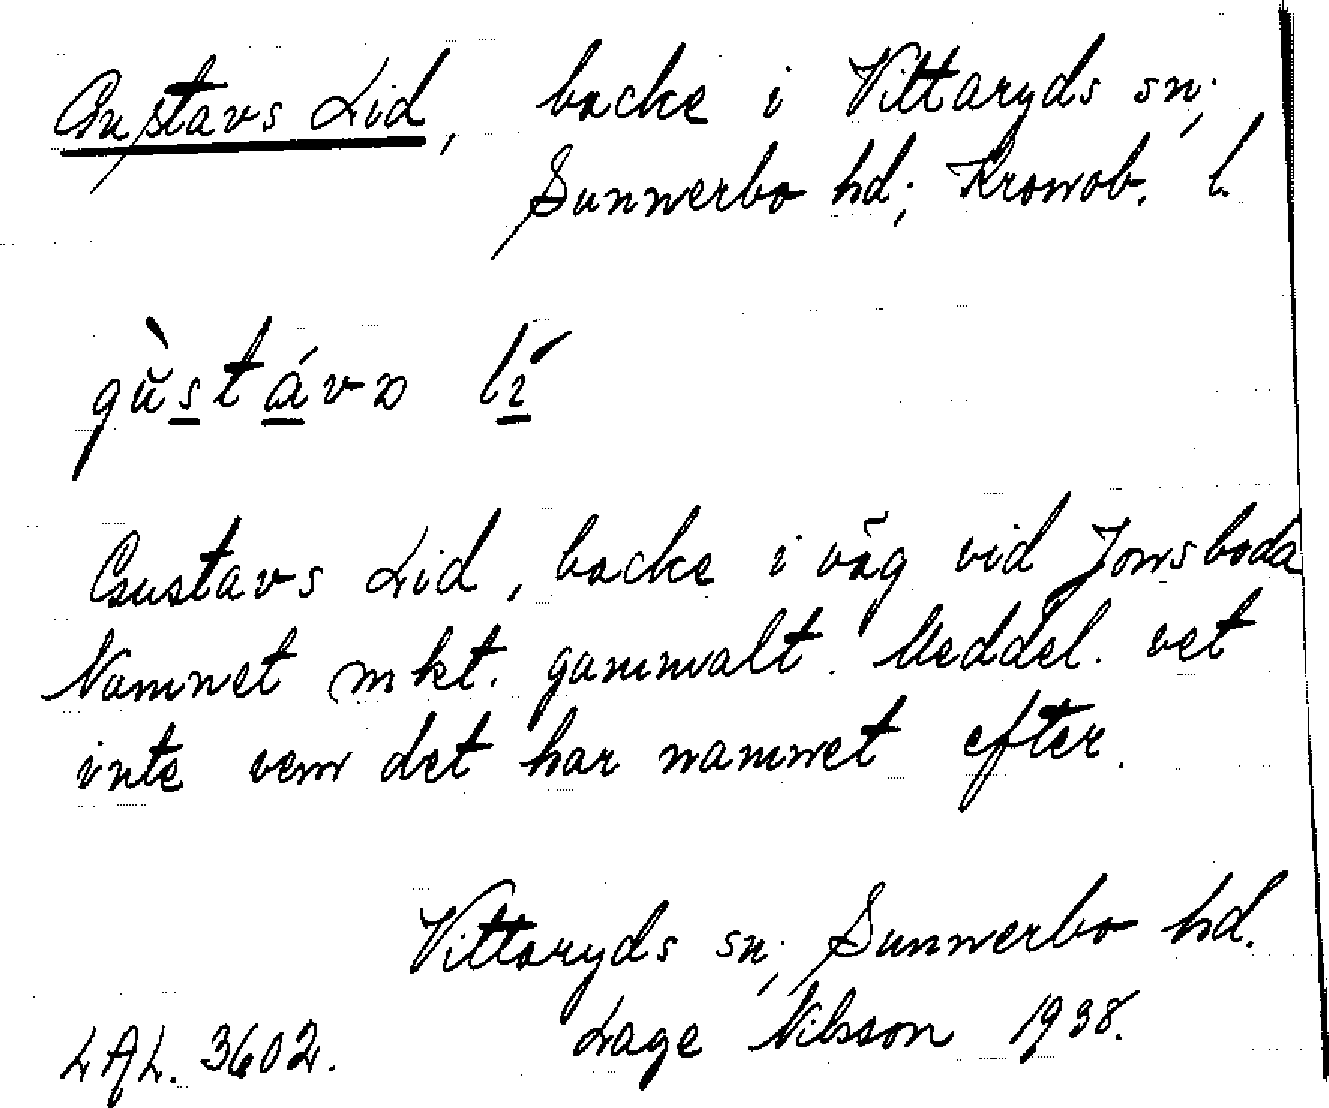 Gustavs Lid, backe i Vittaryds sn;
Sunnerbo hd; Kronob. L
gùstávs lí
Gustavs Lid, backe i väg vid Jonsboda
Namnet mkt. gammalt. Meddel. vet
inte vem det har namnet efter.
Vittaryds sn; Sunnerbo hd.
LAL. 3602. Lage Nilsson 1938.